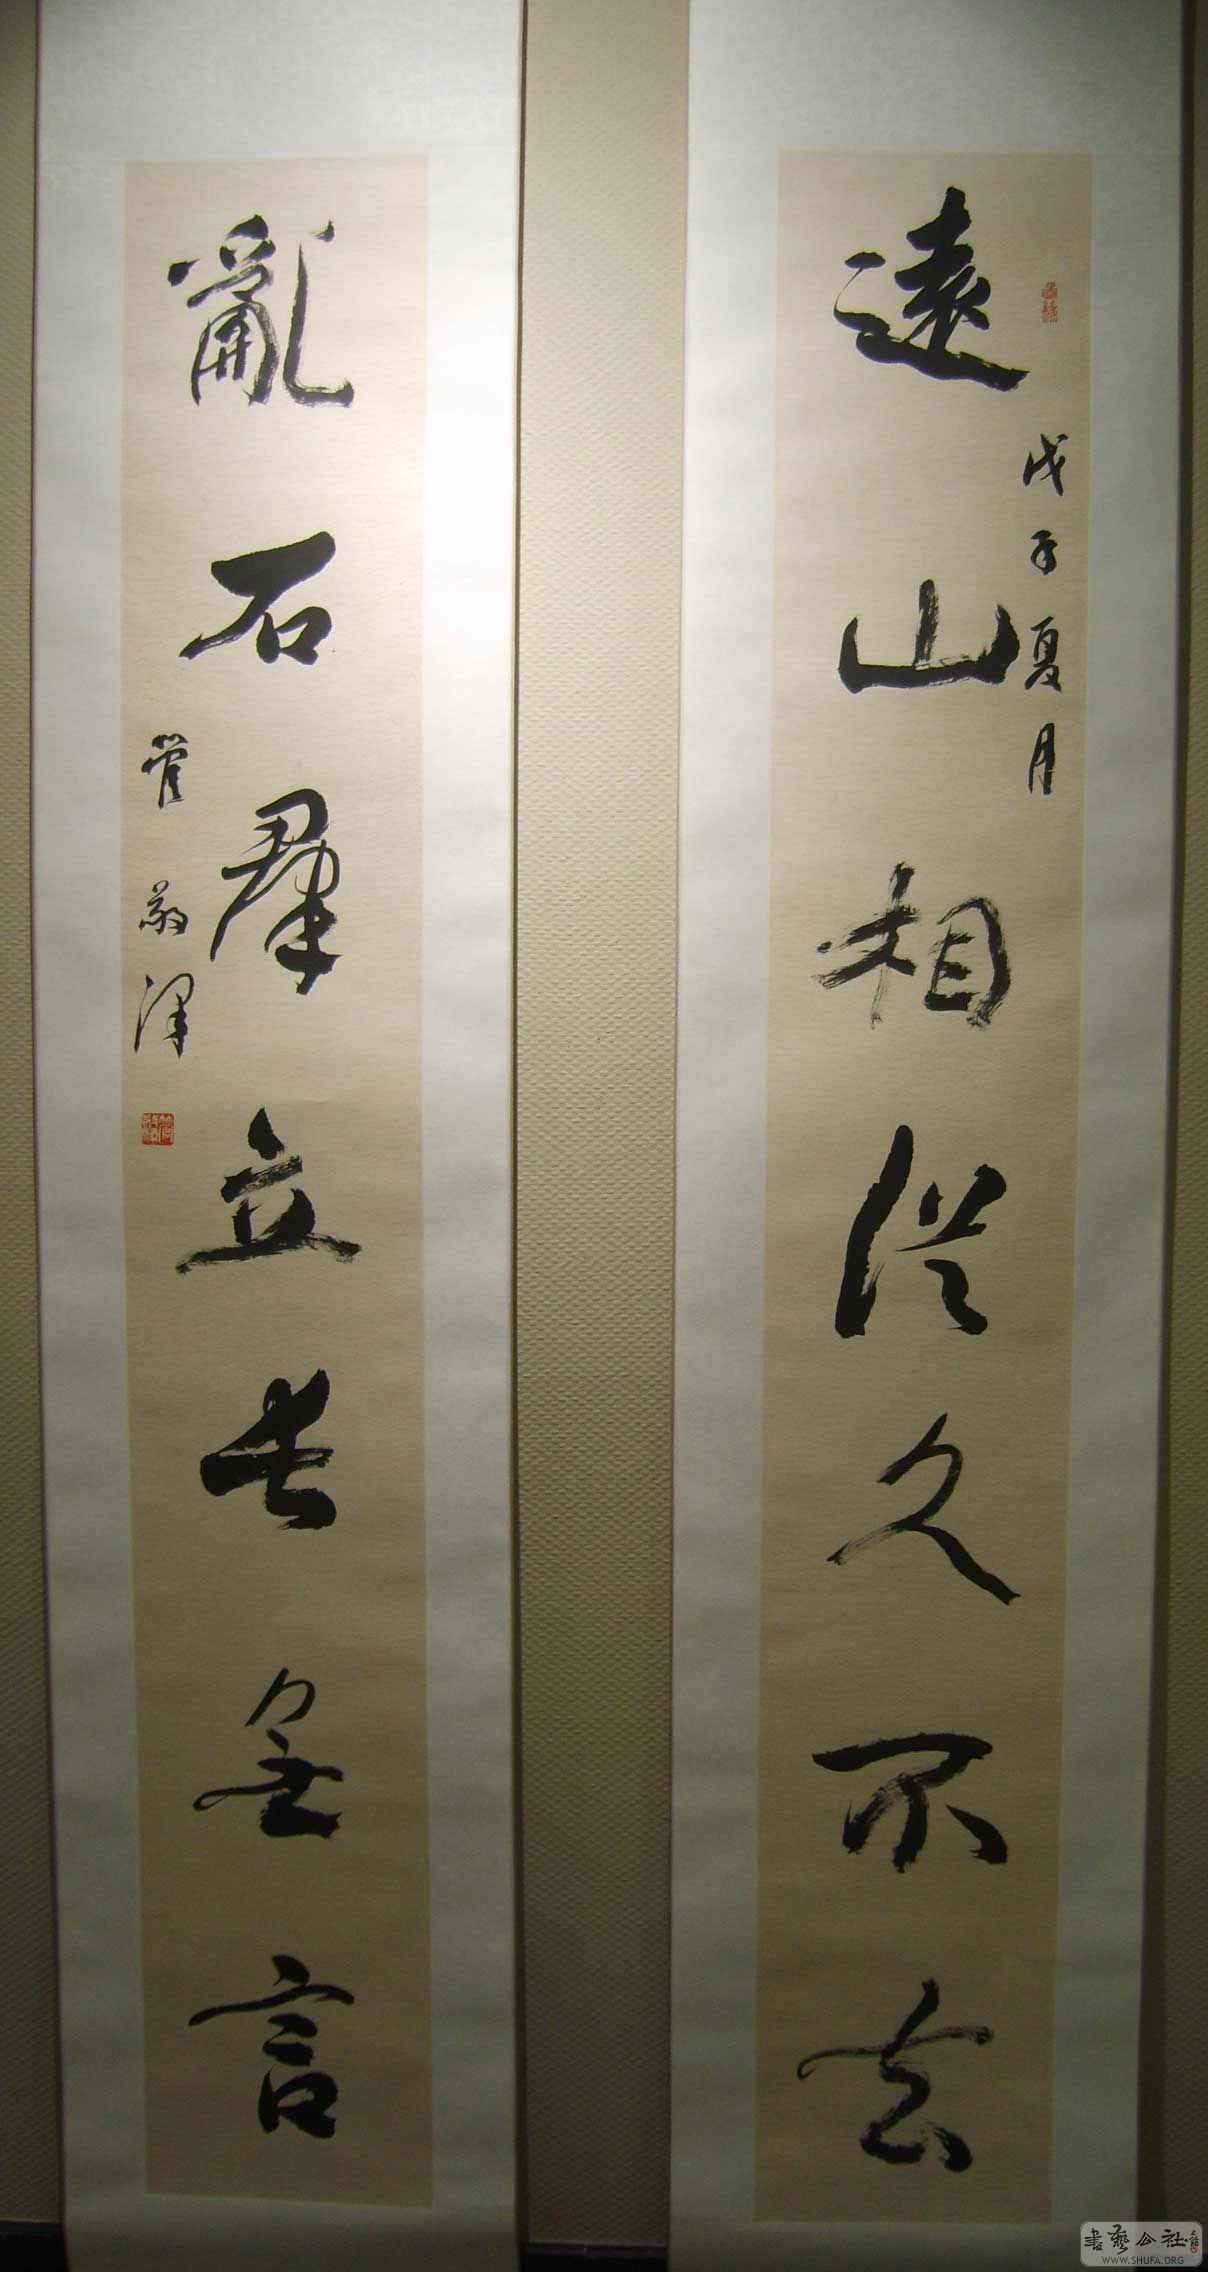 遠山相從久不去
戊子夏月
亂石群立長無言
管敬澤
書藝公社
WWW.SHUFA.ORG